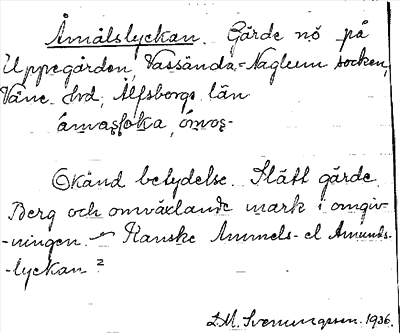 Åmålslyckan. Gärde nö på
Uppegården, Vassända-Naglum socken,
Väne hd, Älfsborgs län

Okänd betydelse. Slätt gärde.
Berg och omväxlande mark i omgiv-
-ningen. – Kanske Ammels- el Amunds-
-lyckan?
D.M. Svenungsson. 1936.